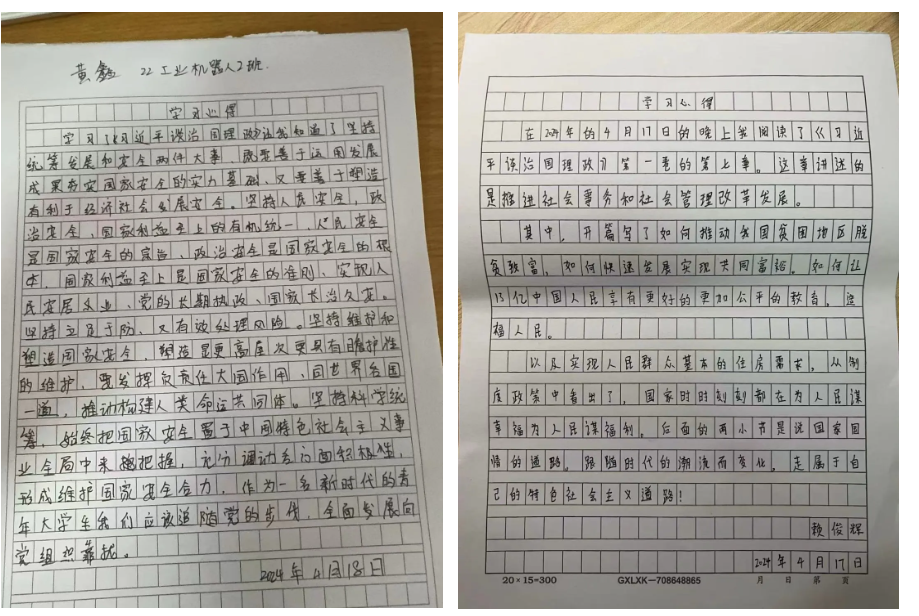 黄鑫 22工业机器人2班.
学习心得
学习了《习近平谈治国理政》让我知道了坚持
统筹发展和安全两件大事,既要善于运用发展
成果夯实国家安全的实力基础、又要善于塑造
有利于经济社会发展安全。坚持人民安全,政
治安全、国家利益至上的有机统一,人民安全
是国家安全的宗旨、政治安全是国家安全的根
本,国家利益至上是国家安全的准则、实现人
民安居乐业、党的长期执政、国家长治久安。
坚持立足于防、又有效处理风险。坚持维护和
塑造国家安全,塑造是更高层次更具有前瞻性
的维护,要发挥负责任大国作用、同世界各国
一道,推动构建人类命运共同体。坚持科学统
筹、始终把国家安全置于中国特色社会主义事
业全局中来把握,充分调动各方面积极性,
形成维护国家安全合力,作为一名新时代的青
年大学生我们应该追随党的步伐,全面发展向
党组织靠拢。
2024年4月18日
学习心得
在2024年的4月17日的晚上我阅读了《习近
平谈治国理政》第一卷的第七章。这章讲述的
是推进社会事务和社会管理改革发展。
其中,开篇写了如何推动我国贫困地区脱
贫致富,如何快速发展实现共同富裕。如何让
13亿中国人民享有更好的更加公平的教育,造
福人民。
以及实现人民群众基本的住房需求,从制
度政策中看出了,国家时时刻刻都在为人民谋
幸福为人民谋福利。后面的两小节是说国家国
情的道路。跟随时代的潮流而变化。走属于自
己的特色社会主义道路!
赖俊辉
2024年4月17日
20×15=300 GXLXK—708648865 月 日 第 页